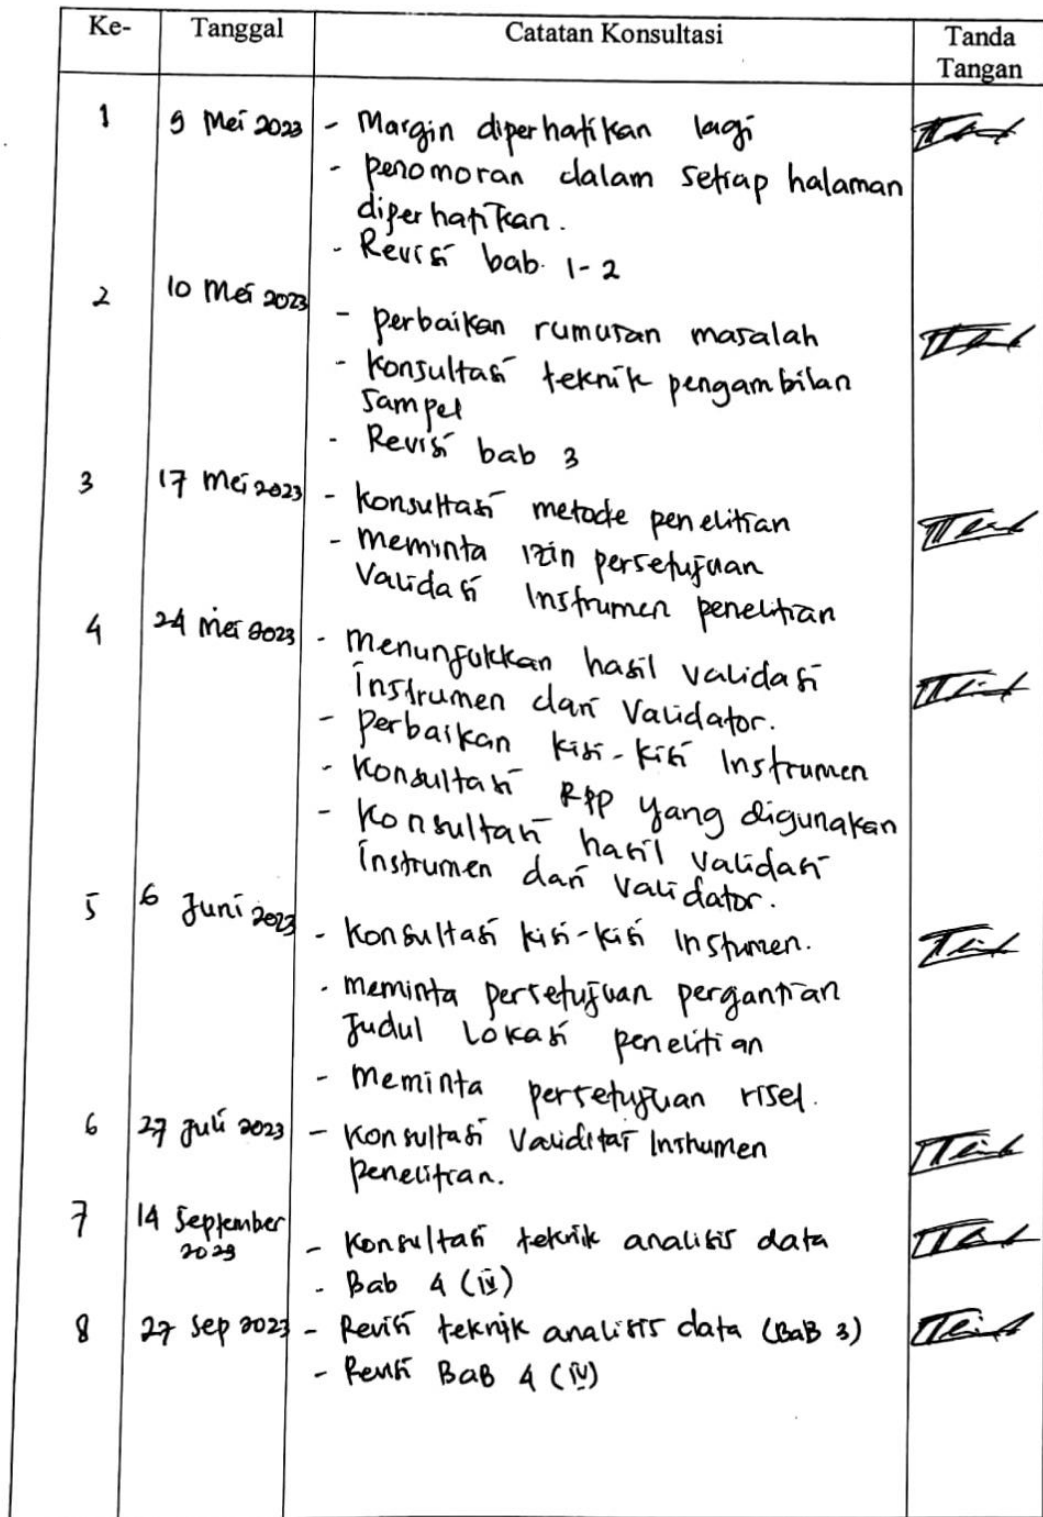 Ke- Tanggal Catatan Konsultasi Tanda Tangan
1 9 Mei 2023 - Margin diperhatikan lagi
- penomoran dalam setiap halaman
diperhatikan.
- Revisi bab 1-2
2 10 Mei 2023
- perbaikan rumusan masalah
- Konsultasi teknik pengambilan
sampel
- Revisi bab 3
3 17 Mei 2023 - konsultasi metode penelitian
- meminta izin persetujuan
Validasi Instrumen penelitian
4 24 Mei 2023 - menunjukkan hasil validasi
Instrumen dari Validator.
- perbaikan kisi-kisi Instrumen
- Konsultasi RPP yang digunakan
- Konsultasi hasil validasi
instrumen dari validator.
5 6 Juni 2023
- Konsultasi kisi-kisi Instumen.
- meminta persetujuan pergantian
Judul Lokasi penelitian
- Meminta persetujuan risel.
6 27 Juli 2023 - Konsultasi Validitas Instrumen
penelitian.
7 14 September
2023 - Konsultasi teknik analisis data
- Bab 4 (iv)
8 27 Sep 2023 - Revisi teknik analisis data (BaB 3)
- Revisi BaB 4 (IV)